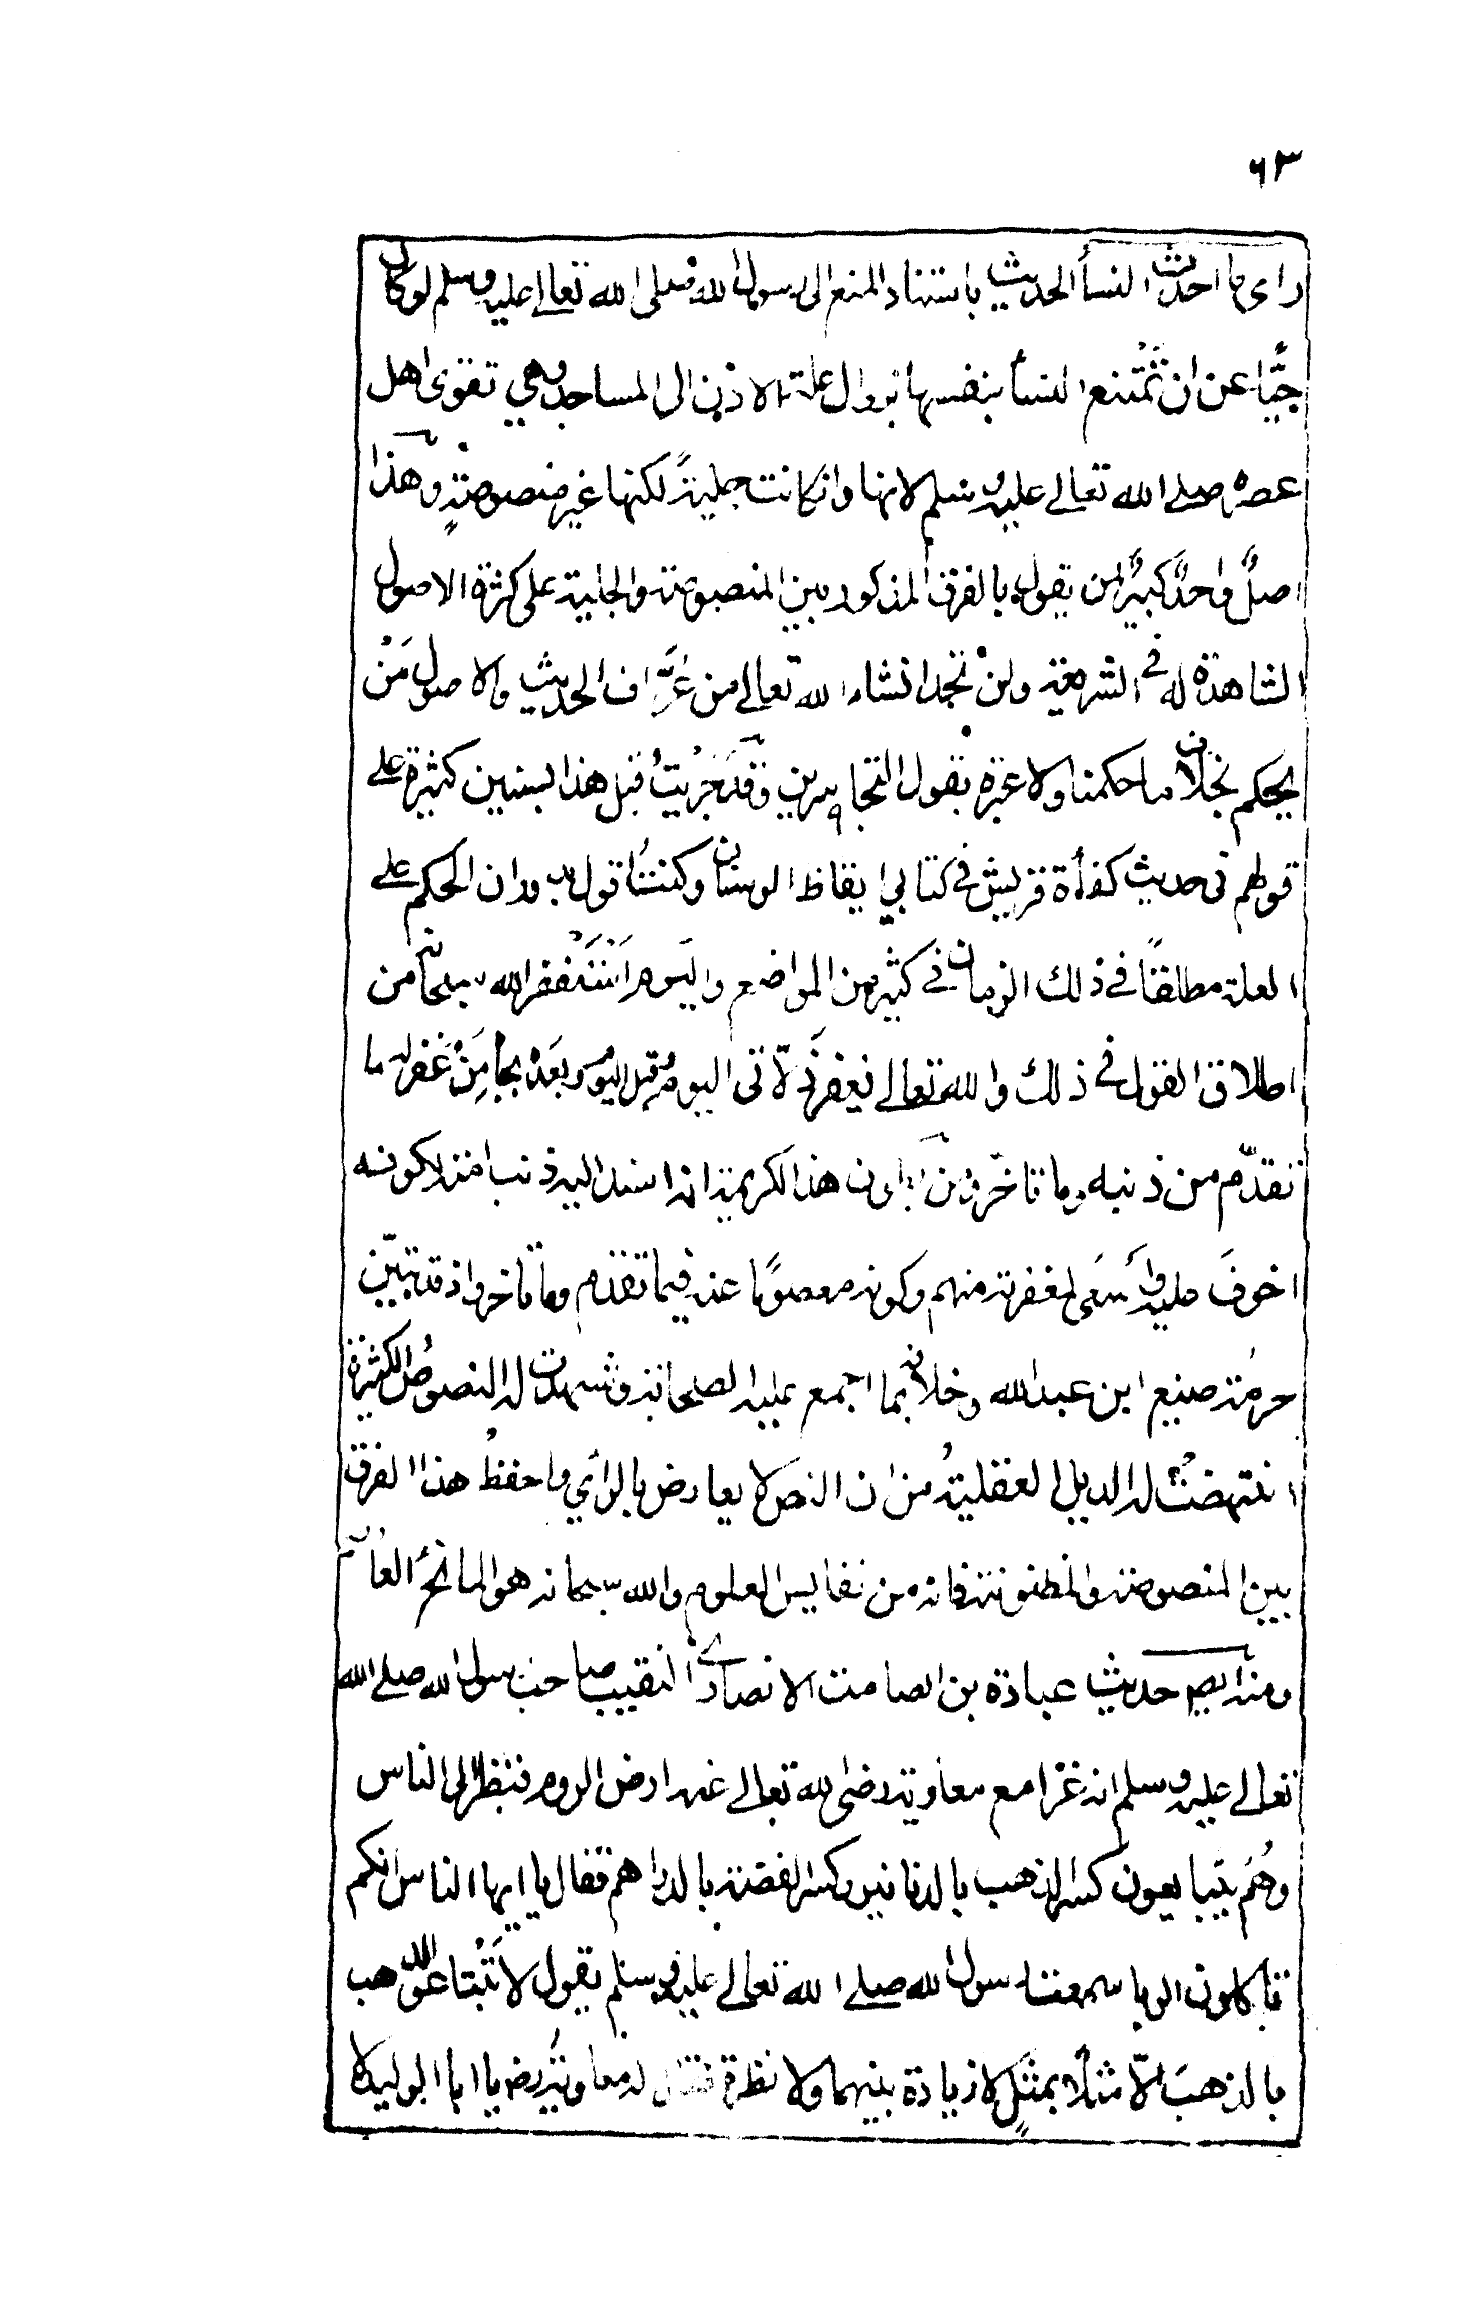 ٦٣
رأى ما احدث النسأ الحديث باستناد المنع الى رسول الله صلى الله تعالى عليه وسلم لو كان
حيًّا عن ان تمتنع النسأ بنفسها بزوال علة الاذن الى المساجد وهي تقوى اهل
عصره صلے الله تعالے عليه وسلم لانها وان كانت جليةً لكنها غير منصوصةٍ وهذا
اصلٌ واحدٌ كبيرٌ لمن يقول بالفرق المذكور بين المنصوصة والجلية على كثرة الاصول
الشاهدة له في الشريعة ولن تجد انشاء الله تعالے من عرَّاف الحديث والاصول مَنْ
يحكم بخلاف ما حكمنا ولا عبرة بقول المتجاسرين وقد جريتُ قبل هذا بسنين كثيرة علے
قولهم فى حديث كفأة قريش في كتابي ايقاظ الوسنان وكنتُ اقول بدوران الحكم علے
العلة مطلقاً في ذلك الزمان في كثير من المواضع واليوم اَسْتَغفر الله سبحانه من
اطلاق القول في ذلك والله تعالے يغفر زلّاتى اليوم وقبل اليوم وبعده بجاه مَنْ غفر له ما
تقدّم من ذنبه وما تاخّر ومن هذا الكريمة انه اسند اليه ذنب امته لكونه
اخوفَ عليه واَسعَى لمغفرته منهم وكونه معصومًا عنه فيما تقدم وما تاخر واذ قد تبيّن
حرمُة صنيع ابن عبد الله وخلافه بما اجمع عليه الصحابة وشهدت له النصوصُ الكثيرة
انتهضتْ له الدليل العقليةُ من ان النص لا يعارض بالرأي واحفظْ هذا الفرق
بين المنصوصة والمظنونة فانه من نفايس العلوم والله سبحانه هو المانح
ومنه ايضا حديث عبادة بن الصامت الانصارى النقيب صاحب رسول الله صلے الله
تعالے عليه وسلم انه غزا مع معاوية رضى الله تعالے عنه ارض الروم فنظر الى الناس
وهُمْ يتبايعون كسر الذهب بالدنانير وكسر الفضة بالدراهم فقال يا ايها الناس انكم
تاكلون الربا سمعت رسول الله صلے الله تعالے عليه وسلم يقول لا تَبْتاعُوا الذهب
بالذهبَ الّا مثلًا بمثلٍ لا زيادة بينهما ولا نظرة فقال له معاوية رض يا ابا الوليد لا